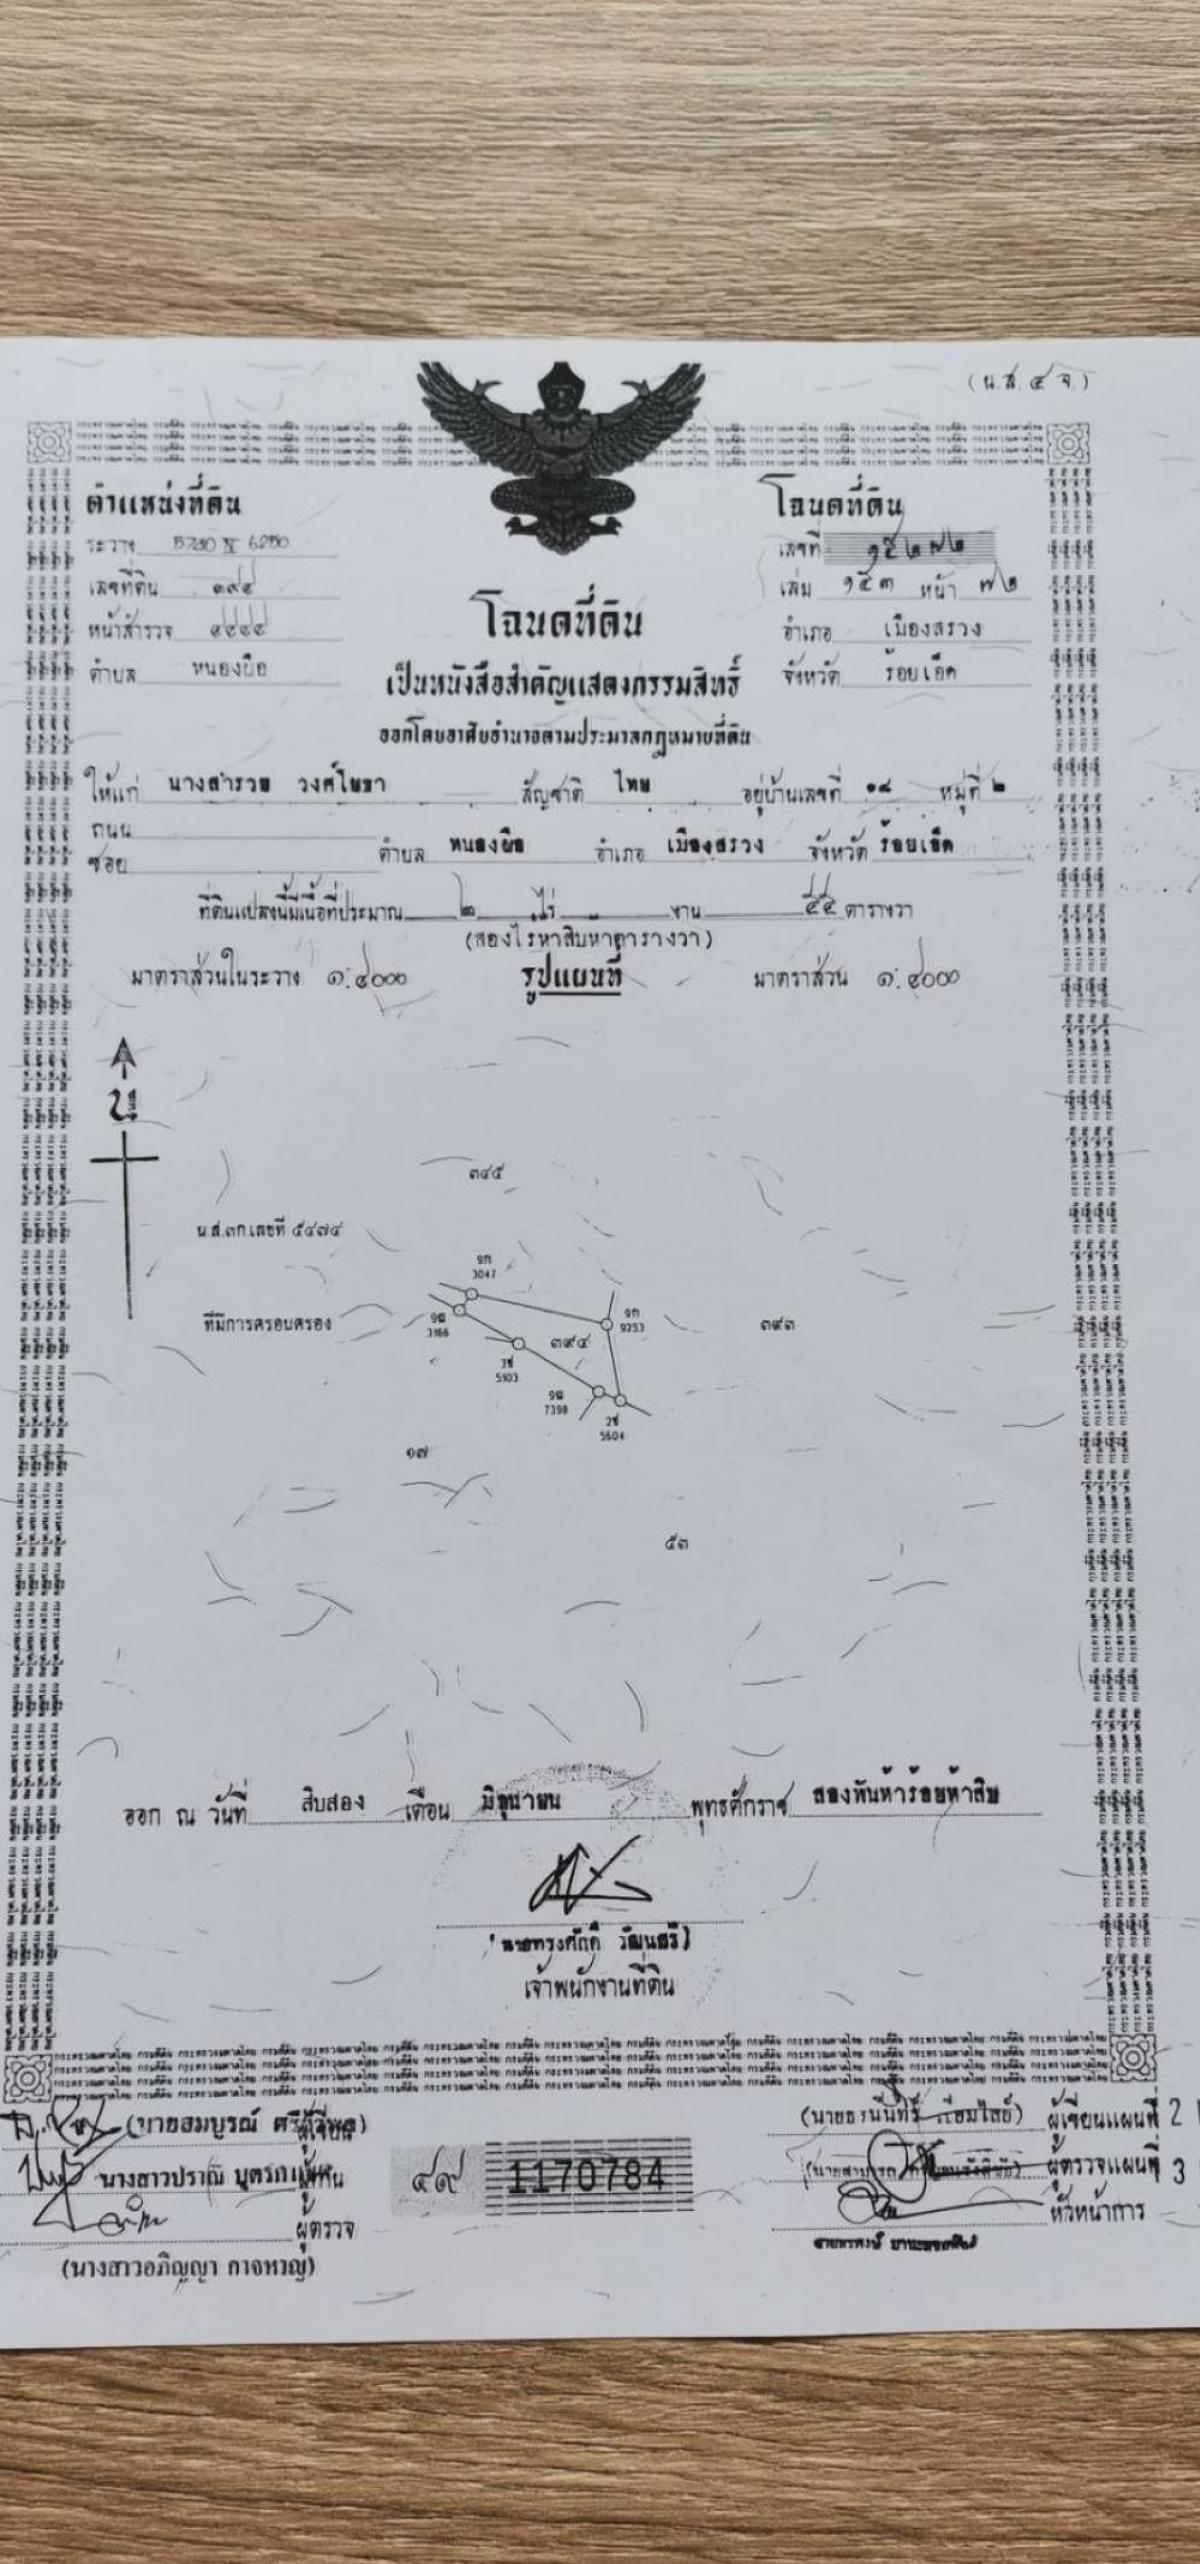 (น.ส. ๔ จ.)
ตำแหน่งที่ดิน
ระวาง 5740 IV 6250
เลขที่ดิน ๓๙๔
หน้าสำรวจ
ตำบล หนองผือ
โฉนดที่ดิน
เลขที่ ๑๕๒๗๒
เล่ม ๑๕๓ หน้า ๗๒
อำเภอ เมืองสรวง
จังหวัด ร้อยเอ็ด
โฉนดที่ดิน
เป็นหนังสือสำคัญแสดงกรรมสิทธิ์
ออกโดยอาศัยอำนาจตามประมวลกฎหมายที่ดิน
ให้แก่ นางสำรวย วงศ์โยธา สัญชาติ ไทย อยู่บ้านเลขที่ ๑๘ หมู่ที่ ๒
ถนน
ซอย ตำบล หนองผือ อำเภอ เมืองสรวง จังหวัด ร้อยเอ็ด
ที่ดินแปลงนี้มีเนื้อที่ประมาณ ๒ ไร่ งาน ๕๕ ตารางวา
(สองไร่ห้าสิบห้าตารางวา)
มาตราส่วนในระวาง ๑:๔๐๐๐ รูปแผนที่ มาตราส่วน ๑:๔๐๐๐
๓๔๕
น.ส.๓ก.เลขที่ ๕๔๗๔
3047
ที่มีการครอบครอง
3166
๓๙๔
9253
๓๙๓
5103
7398
5604
๑๗
๕๓
ออก ณ วันที่ สิบสอง เดือน มิถุนายน พุทธศักราช สองพันห้าร้อยห้าสิบ
(นายทรงศักดิ์ วัฒนศรี)
เจ้าพนักงานที่ดิน
(นายสมบูรณ์ ผู้เขียน
นางสาวปราณี
ผู้ตรวจ
(นางสาวอภิญญา กาจหาญ)
๔๙ 1170784
ผู้เขียนแผนที่ 2
ผู้ตรวจแผนที่ 3
หัวหน้าการ